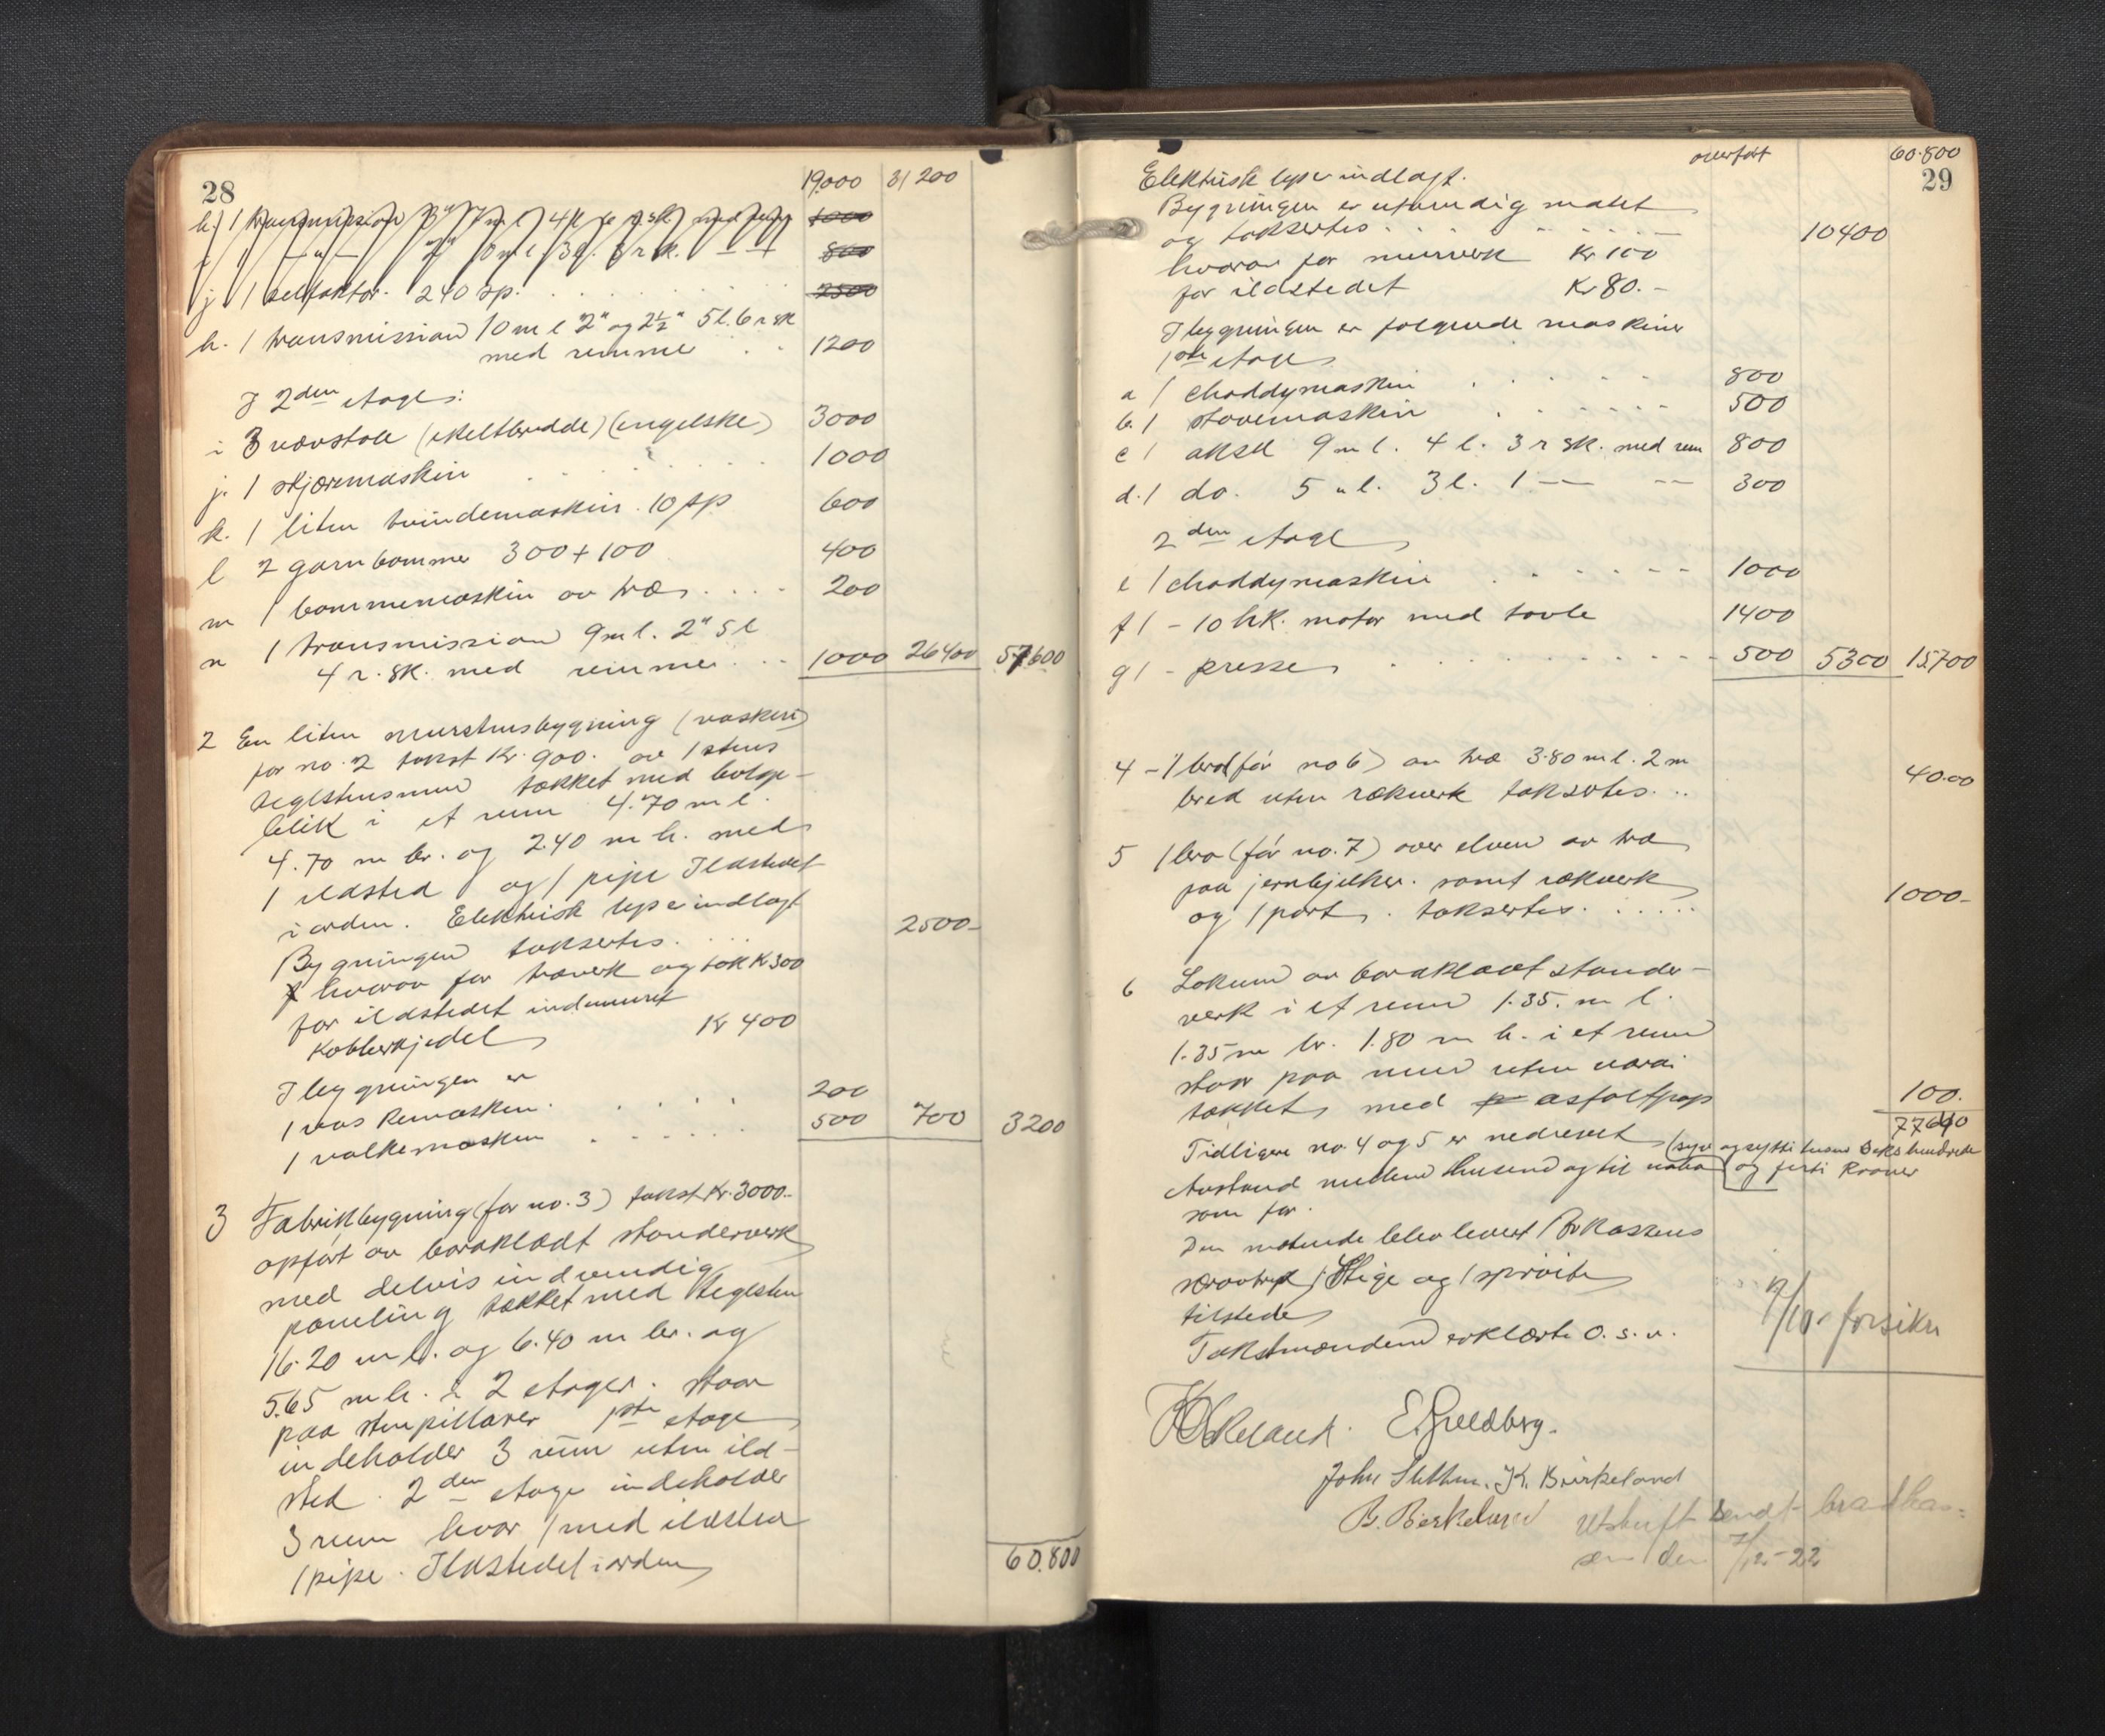 28
19000 31200
h. 1 transmission 7 m l 4 l 6 r.sk. med rem 1000
i 1 — " — 2" 10 m l. 3 l. 3 r sk. — — 800
j 1 selfaktor. 240 sp. 2500
h. 1 transmission 10 m l 2" og 2½" 5 l. 6 r sk
med remmer . . 1200
I 2den etage:
i 3 vævstole (ekeltbredde) (engelske) 3000
j. 1 skjæremaskin 1000
k. 1 liten tvindemaskin. 10 sp 600
l 2 garnbommer 300 + 100 400
m 1 bommemaskin av træ . . . . 200
n 1 transmission 9 m l. 2" 5 l
4 r. sk. med remmer . . . 1000 26400 57600
2 En liten murstensbygning (vaskeri)
før no. 2 takst Kr. 900. av 1 stens
teglstensmur tækket med bølge-
blik i et rum 4.70 m l.
4.70 m br. og 2.40 m h. med
1 ildsted og 1 pipe Ildstedet
i orden. Elektrisk lys er indlagt
Bygningen taksertes. . . . 2500-
hvorav for træverk og tak K 300
for ildstedet indemuret
Kobberkjedel Kr 400
I bygningen er
1 vaskemaskin. . . . . 200
1 valkemaskin . . . . 500 700 3200
3 Fabrikbygning (før no. 3) takst Kr. 3000..
opført av bordklædt stenderverk
med delvis indvendig
paneling tækket med teglsten
16.20 m l. og 6.40 m br. og
5.65 m h. i 2 etager. staar
paa stenpillarer 1ste etage
indeholder 3 rum uten ild-
sted. 2den etage indeholder
3 rum hvor 1 med ildsted
1 pipe. Ildstedet i orden
60.800
overført 60.800
29
Elektrisk lys er indlagt.
Bygningen er utvendig malet
og taksertes . . . . . . 10400
hvorav for murverk Kr 100
for ildstedet Kr 80.-
I bygningen er følgende maskiner
1ste etage
a 1 choddymaskin . . . . . 800
b. 1 støvemaskin . . . . . 500
c 1 aksel 9 m l. 4 l. 3 r sk. med rem 800
d. 1 do. 5 " l. 3 l. 1 — — 300
2den etage
e 1 choddymaskin . . . . . 1000
f 1 - 10 hk. motor med tavle 1400
g 1 - presse . . . . . 500 5300 15700
4 - 1 bro (før no 6) av træ 3.80 m l. 2 m
bred uten rækverk taksertes. .. 40.00
5 1 bro (før no. 7) over elven av træ
paa jernbjelker. samt rækverk
og 1 port. taksertes. . . . . 1000-
6 Lokum av bordklædt stender-
verk i et rum 1.35. m l.
1.35 m br. 1.80 m h. i et rum
staar paa mur uten værdi
tækket med asfaltpap 100.
77640
Tidligere no. 4 og 5 er nedrevet (syv og sytti tusen seks hundrede
Avstand mellem husene og til nabo og førti Kroner
som før.
Den møtende blev levert Brkassens
særavtryk. 1 Stige og 1 sprøite
tilstede
Takstmændene erklærte o. s. v.
E. Guldberg.
K. Birkeland
B. Birkeland
Utskrift sendt brandkas-
sen den 7/12-22